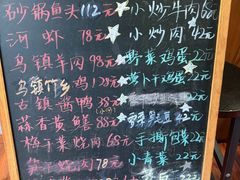 砂锅鱼头 112元
河虾 78元
乌镇羊肉 98元
乌镇竹乡
古镇酱鸭 38元
蒜香黄鳝 88元
梅干菜烧肉 68元
笋干烧肉 78元
小炒牛肉 68元
小炒肉 42元
野菜鸡蛋 22元
萝卜干鸡蛋 22元
22元
22元
手撕包菜 22元
小青菜 22元